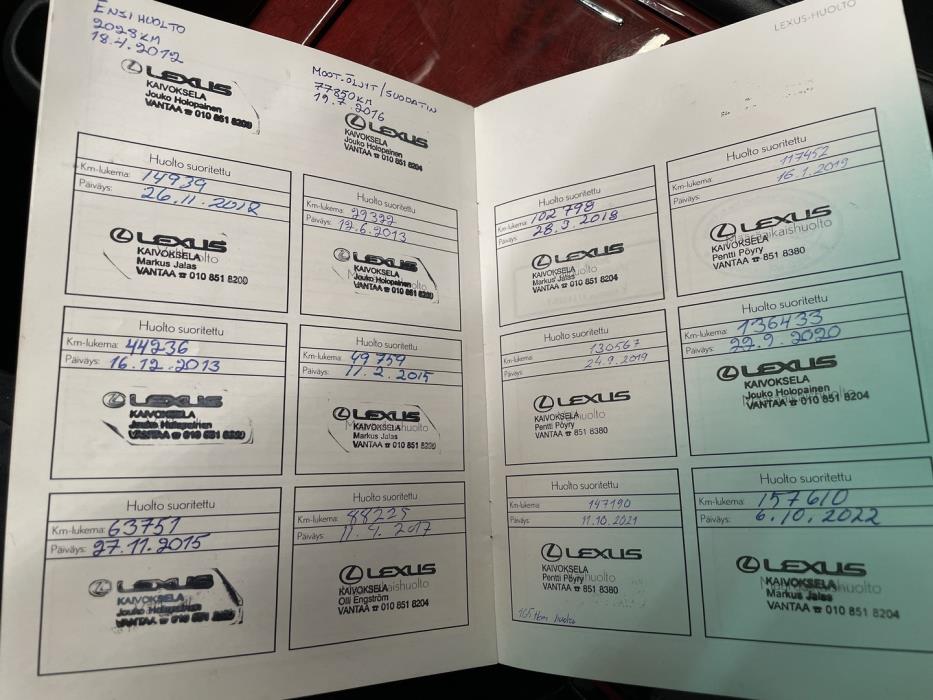 ENSIHUOLTO
2028KM
18.4.2012
LEXUS
KAIVOKSELA
Jouko Holopainen
VANTAA ☎ 010 851 8200
MOOT.ÖLJYT/SUODATIN
77850KM
19.7.2016
LEXUS
KAIVOKSELA
Jouko Holopainen
VANTAA ☎ 010 851 8204
Huolto suoritettu
Km-lukema: 14939
Päiväys: 26.11.2012
LEXUS
KAIVOKSELA
Markus Jalas
VANTAA ☎ 010 851 8200
Huolto suoritettu
Km-lukema: 29392
Päiväys: 12.6.2013
LEXUS
KAIVOKSELA
Jouko Holopainen
VANTAA ☎ 010 851 8200
Huolto suoritettu
Km-lukema: 44236
Päiväys: 16.12.2013
LEXUS
KAIVOKSELA
Jouko Holopainen
VANTAA ☎ 010 851 8200
Huolto suoritettu
Km-lukema: 49759
Päiväys: 11.2.2015
LEXUS
KAIVOKSELA
Markus Jalas
VANTAA ☎ 010 851 8200
Huolto suoritettu
Km-lukema: 63751
Päiväys: 27.11.2015
LEXUS
KAIVOKSELA
Jouko Holopainen
VANTAA ☎ 010 851 8204
Huolto suoritettu
Km-lukema: 88225
Päiväys: 11.4.2017
LEXUS
KAIVOKSELA
Olli Engström
VANTAA ☎ 010 851 8204
LEXUS-HUOLTO
Huolto suoritettu
Km-lukema: 102798
Päiväys: 28.3.2018
LEXUS
KAIVOKSELA
Markus Jalas
VANTAA ☎ 010 851 8204
Huolto suoritettu
Km-lukema: 117452
Päiväys: 16.1.2019
LEXUS
Määräaikaishuolto
KAIVOKSELA
Pentti Pöyry
VANTAA ☎ 851 8380
Huolto suoritettu
Km-lukema: 130567
Päiväys: 24.9.2019
LEXUS
KAIVOKSELA
Pentti Pöyry
VANTAA ☎ 851 8380
Huolto suoritettu
Km-lukema: 136433
Päiväys: 22.9.2020
LEXUS
KAIVOKSELA
Jouko Holopainen
VANTAA ☎ 010 851 8204
Huolto suoritettu
Km-lukema: 147190
Päiväys: 11.10.2021
LEXUS
KAIVOKSELA
Pentti Pöyry
VANTAA ☎ 851 8380
165 tkm huolto
Huolto suoritettu
Km-lukema: 157610
Päiväys: 6.10.2022
LEXUS
KAIVOKSELA
Markus Jalas
VANTAA ☎ 010 851 8204